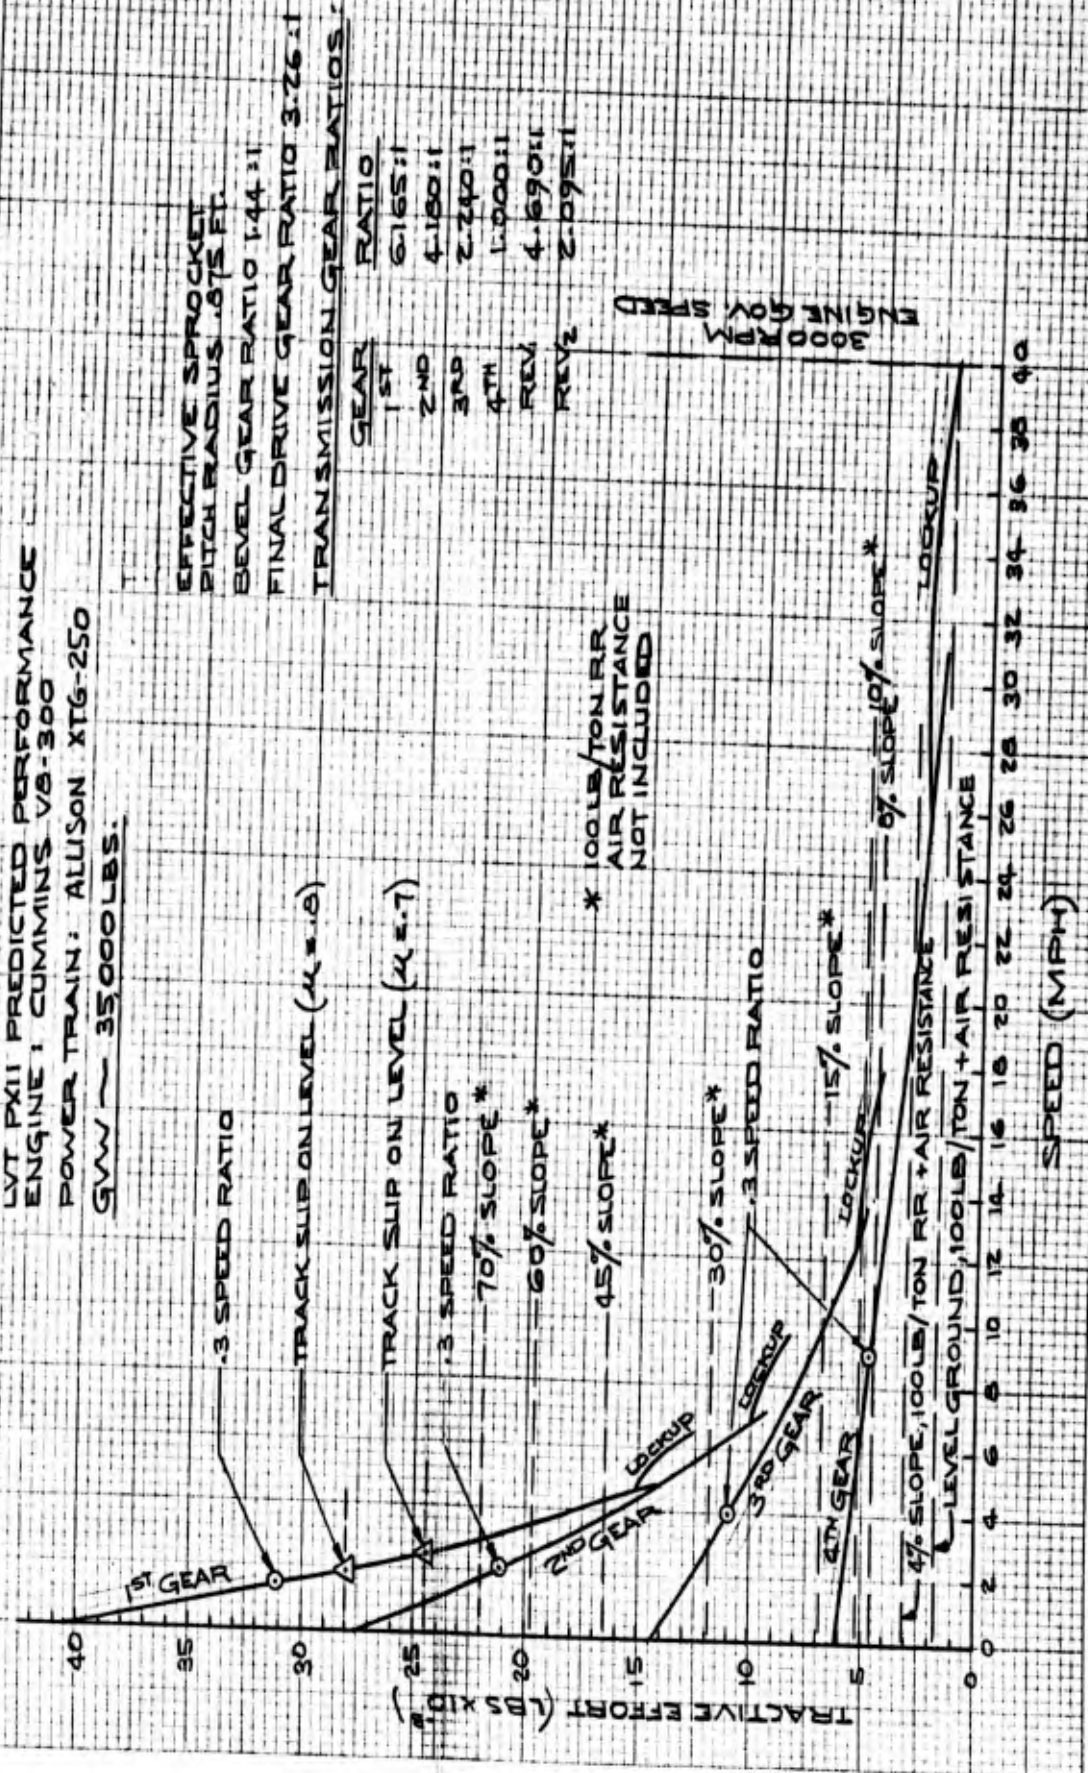 LVT PX11 PREDICTED PERFORMANCE
ENGINE : CUMMINS V8-300
POWER TRAIN: ALLISON XTG-250
GVW ~ 35,000 LBS.
EFFECTIVE SPROCKET
PITCH RADIUS .875 FT.
BEVEL GEAR RATIO 1.44:1
FINAL DRIVE GEAR RATIO 3.26:1
TRANSMISSION GEAR RATIOS:
GEAR RATIO
1ST 6.165:1
2ND 4.180:1
3RD 2.240:1
4TH 1.000:1
REV1 4.690:1
REV2 2.095:1
.3 SPEED RATIO
TRACK SLIP ON LEVEL (μ=.8)
TRACK SLIP ON LEVEL (μ=.7)
.3 SPEED RATIO
70% SLOPE*
60% SLOPE*
45% SLOPE*
30% SLOPE*
.3 SPEED RATIO
15% SLOPE*
10% SLOPE*
8% SLOPE
* 100 LB/TON RR
AIR RESISTANCE
NOT INCLUDED
1ST GEAR
2ND GEAR
3RD GEAR
4TH GEAR
LOCKUP
LOCKUP
LOCKUP
LOCKUP
4% SLOPE, 100 LB/TON RR + AIR RESISTANCE
LEVEL GROUND, 100 LB/TON + AIR RESISTANCE
3000 RPM
ENGINE GOV. SPEED
TRACTIVE EFFORT (LBS X10⁻³)
40
35
30
25
20
15
10
5
0
0 2 4 6 8 10 12 14 16 18 20 22 24 26 28 30 32 34 36 38 40
SPEED (MPH)